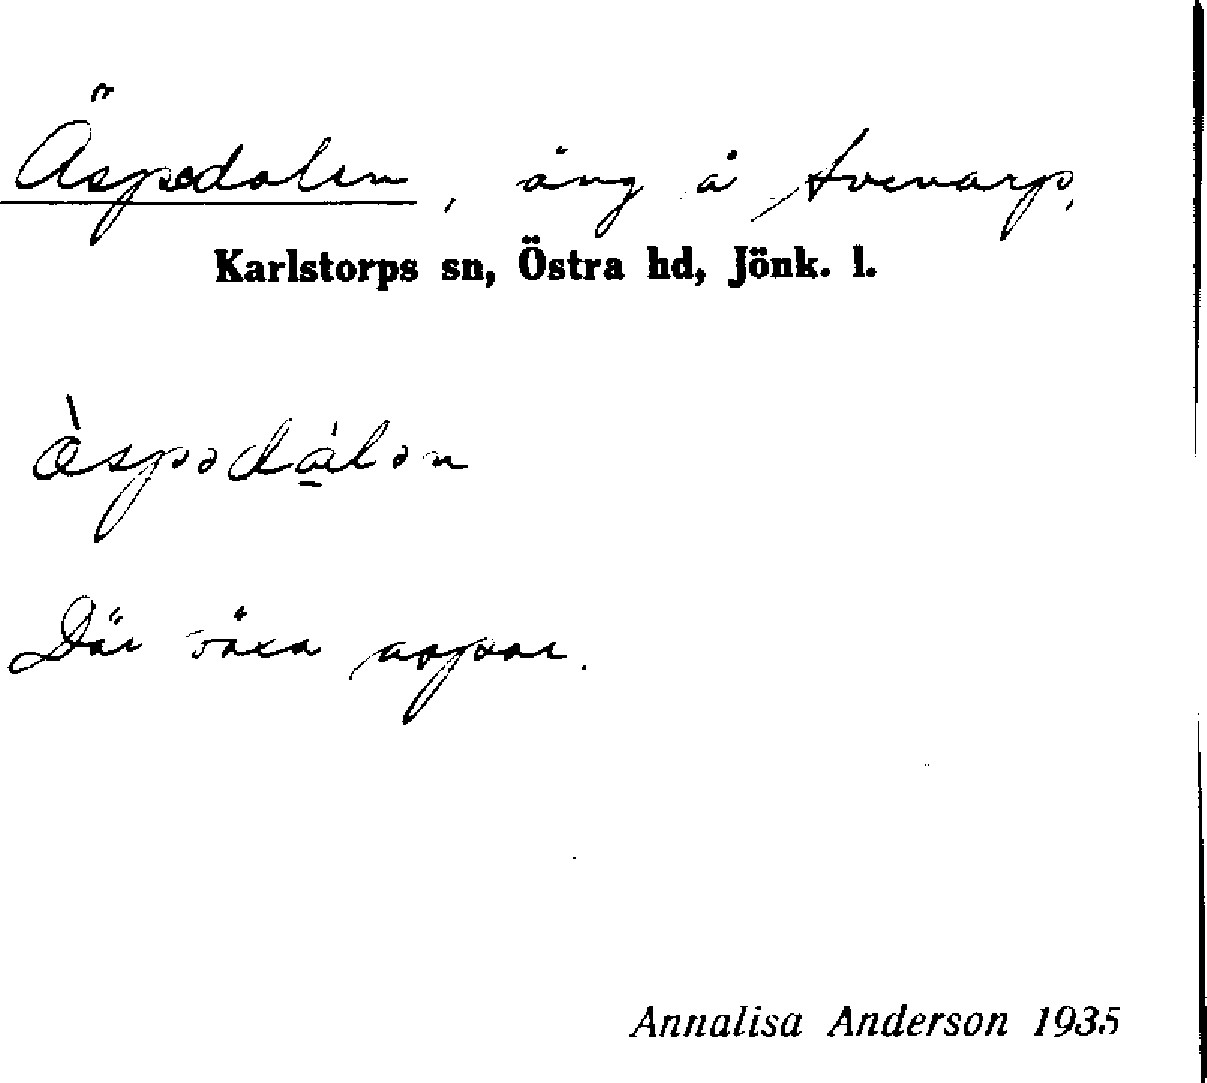 Äspedalen, äng å Svenarp,
Karlstorps sn, Östra hd, Jönk. l.
æ̀spədàlən
Där växa aspar.
Annalisa Anderson 1935